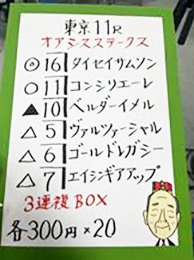 東京11R
オアシスステークス
◎16 タイセイサムソン
○11 コンシリエーレ
▲10 ベルダーイメル
△5 ヴァルツァーシャル
△6 ゴールドレガシー
△7 エイシンギアアップ
3連複BOX
各300円×20